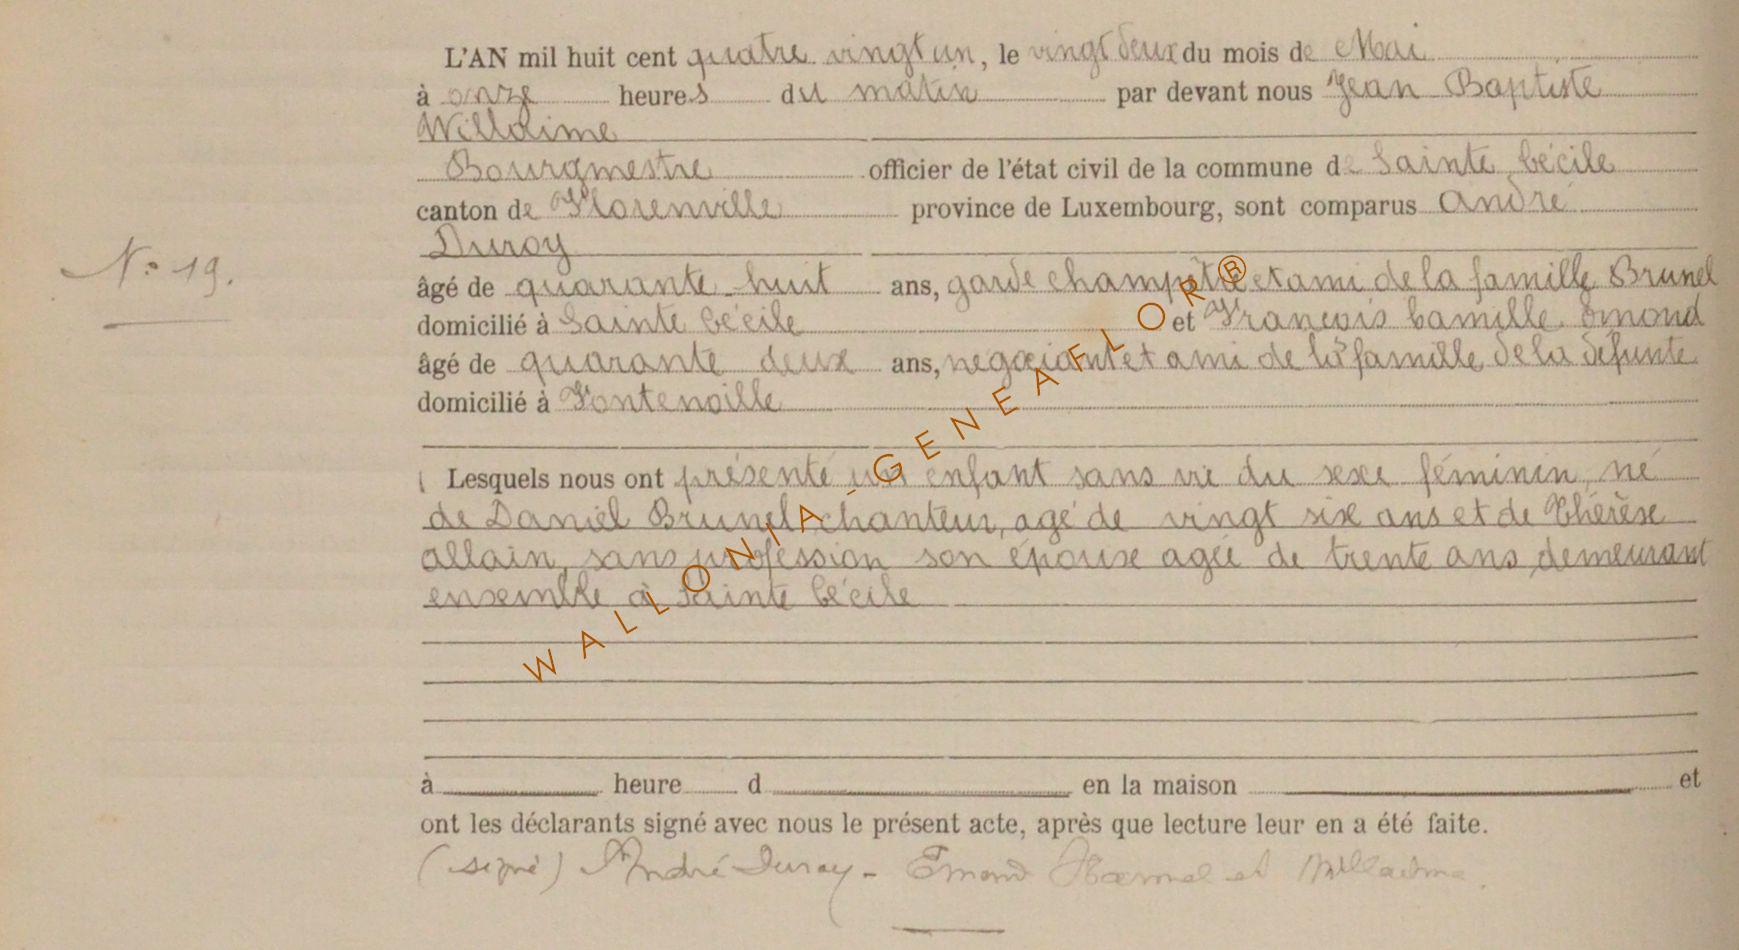 L'AN mil huit cent quatre vingt un, le vingt deux du mois de Mai
à onze heures du matin par devant nous Jean Baptiste
Willaime
Bourgmestre officier de l'état civil de la commune de Sainte Cécile
canton de Florenville province de Luxembourg, sont comparus André
Duroy
N° 19.
âgé de quarante huit ans, garde champêtre et ami de la famille Brunel
domicilié à Sainte Cécile et François Camille Emond
âgé de quarante deux ans, negociant et ami de la famille de la défunte
domicilié à Fontenoille
Lesquels nous ont présenté un enfant sans vie du sexe féminin, né
de Daniel Brunel, chanteur, agé de vingt six ans et de Thérèse
allain, sans profession son épouse agée de trente ans, demeurant
ensemble à Sainte Cécile
à heure d en la maison et
ont les déclarants signé avec nous le présent acte, après que lecture leur en a été faite.
(signé) André Duroy - Emond et Willaime.
WALLONIA-GENEAFLOR®